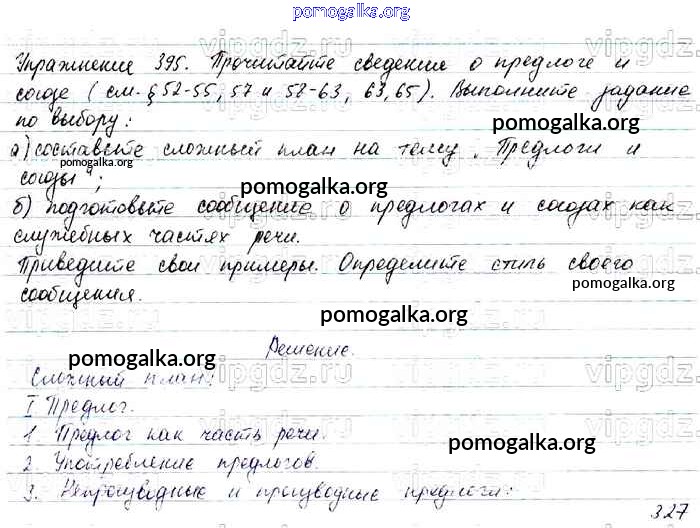 pomogalka.org
Упражнение 395. Прочитайте сведение о предлоге и
союзе (см. § 52-55, 57 и 58-63, 63,65). Выполните задание
по выбору:
pomogalka.org
а) составьте сложный план на тему „Предлоги и
pomogalka.org
союзы";
pomogalka.org
б) подготовьте сообщение о предлогах и союзах как
служебных частях речи.
Приведите свои примеры. Определите стиль своего
pomogalka.org
сообщения.
pomogalka.org
Решение.
pomogalka.org
Сложный план:
I Предлог.
1. Предлог как часть речи.
pomogalka.org
2. Употребление предлогов.
pomogalka.org
3. Непроизводные и производные предлоги:
327
vipgdz.ru